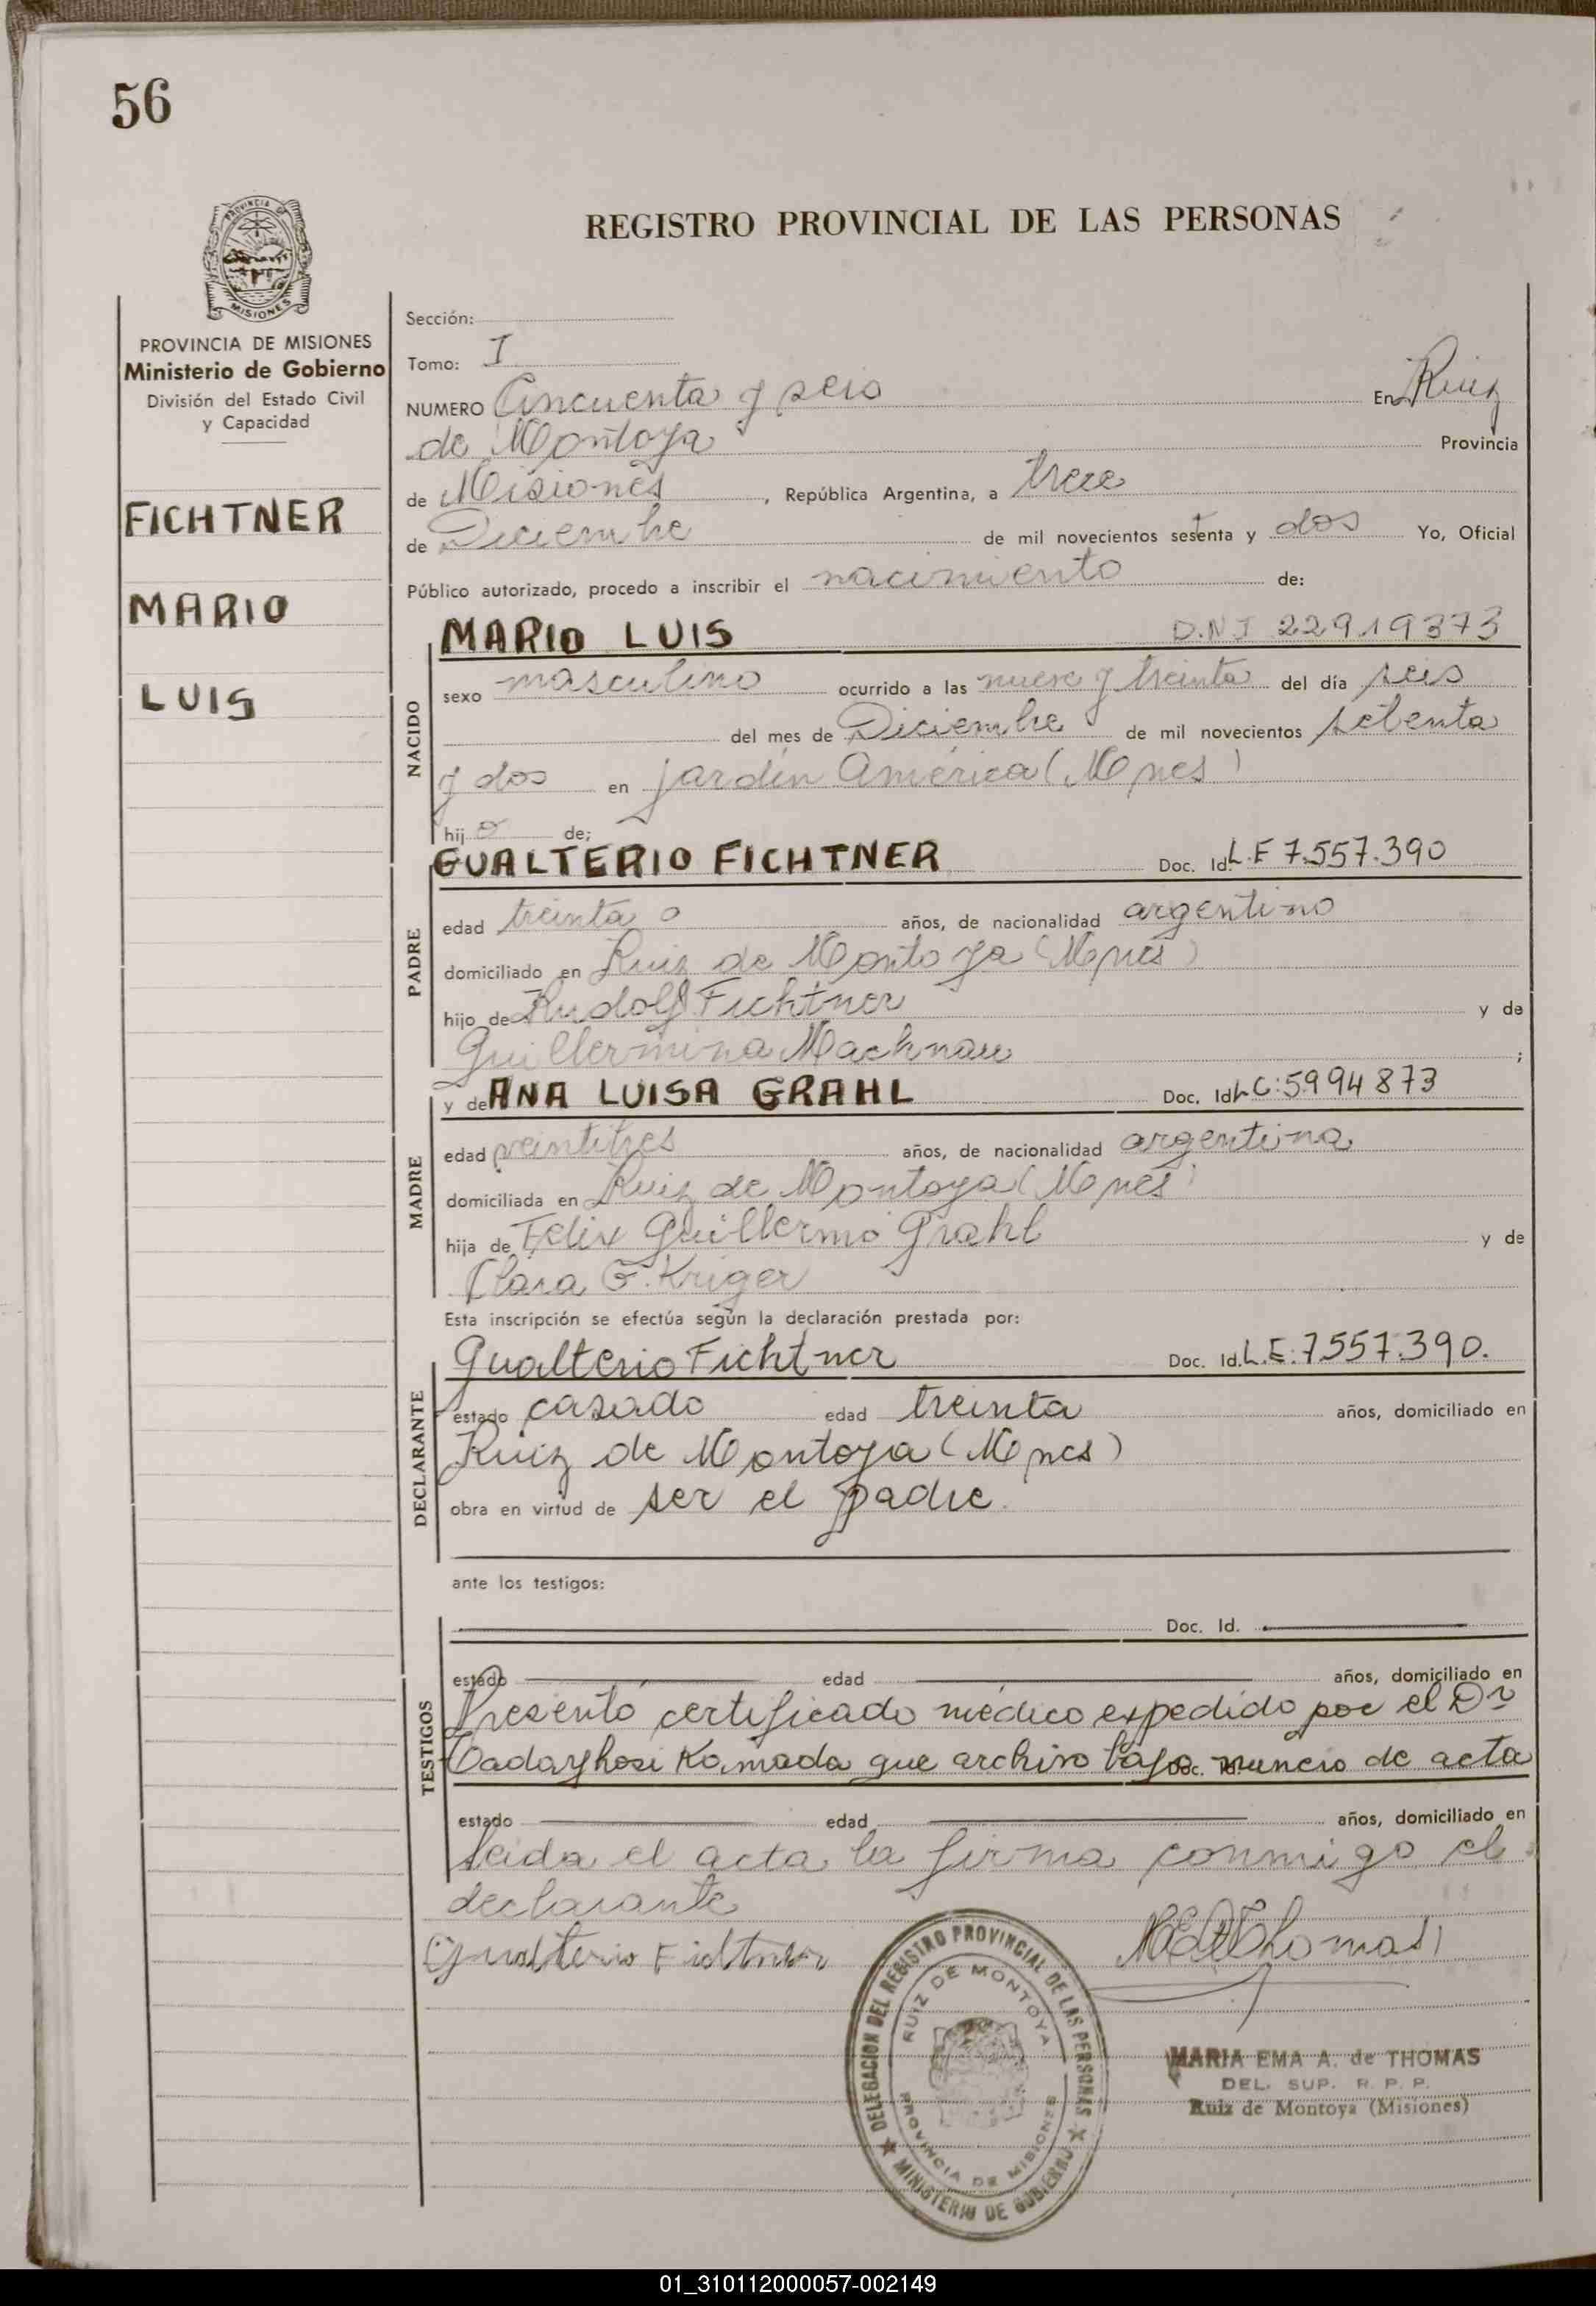 56
REGISTRO PROVINCIAL DE LAS PERSONAS
PROVINCIA DE
MISIONES
PROVINCIA DE MISIONES
Ministerio de Gobierno
División del Estado Civil
y Capacidad
FICHTNER
MARIO
LUIS
Sección:
Tomo: I
NUMERO Cincuenta y seis En Ruiz
de Montoya Provincia
de Misiones, República Argentina, a trece
de Diciembre de mil novecientos setenta y dos Yo, Oficial
Público autorizado, procedo a inscribir el nacimiento de:
NACIDO
MARIO LUIS D.N.I 22919373
sexo masculino ocurrido a las nueve y treinta del día seis
del mes de Diciembre de mil novecientos setenta
y dos en Jardín América (Mnes)
hijo de:
PADRE
GUALTERIO FICHTNER Doc. Id. L.E 7.557.390
edad treinta años, de nacionalidad argentino
domiciliado en Ruiz de Montoya (Mnes)
hijo de Rudolf Fichtner y de
Guillermina Machnau ;
MADRE
y de ANA LUISA GRAHL Doc. Id L C: 5994873
edad veintitres años, de nacionalidad argentina
domiciliada en Ruiz de Montoya (Mnes)
hija de Felix Guillermo Grahl y de
Clara G. Kriger
Esta inscripción se efectúa según la declaración prestada por:
DECLARANTE
Gualterio Fichtner Doc. Id. L.E: 7.557.390.
estado casado edad treinta años, domiciliado en
Ruiz de Montoya (Mnes)
obra en virtud de ser el padre.
ante los testigos:
TESTIGOS
Doc. Id.
estado edad años, domiciliado en
Presentó certificado médico expedido por el Dr
Kamada que archivo bajo numero de acta
estado edad años, domiciliado en
Leida el acta la firma conmigo el
declarante
Gualterio Fichtner Thomas
DELEGACION DEL REGISTRO PROVINCIAL DE LAS PERSONAS
RUIZ DE MONTOYA
PROVINCIA DE MISIONES
MINISTERIO DE GOBIERNO
MARIA EMA A. de THOMAS
DEL. SUP. R. P. P.
Ruiz de Montoya (Misiones)
01_310112000057-002149